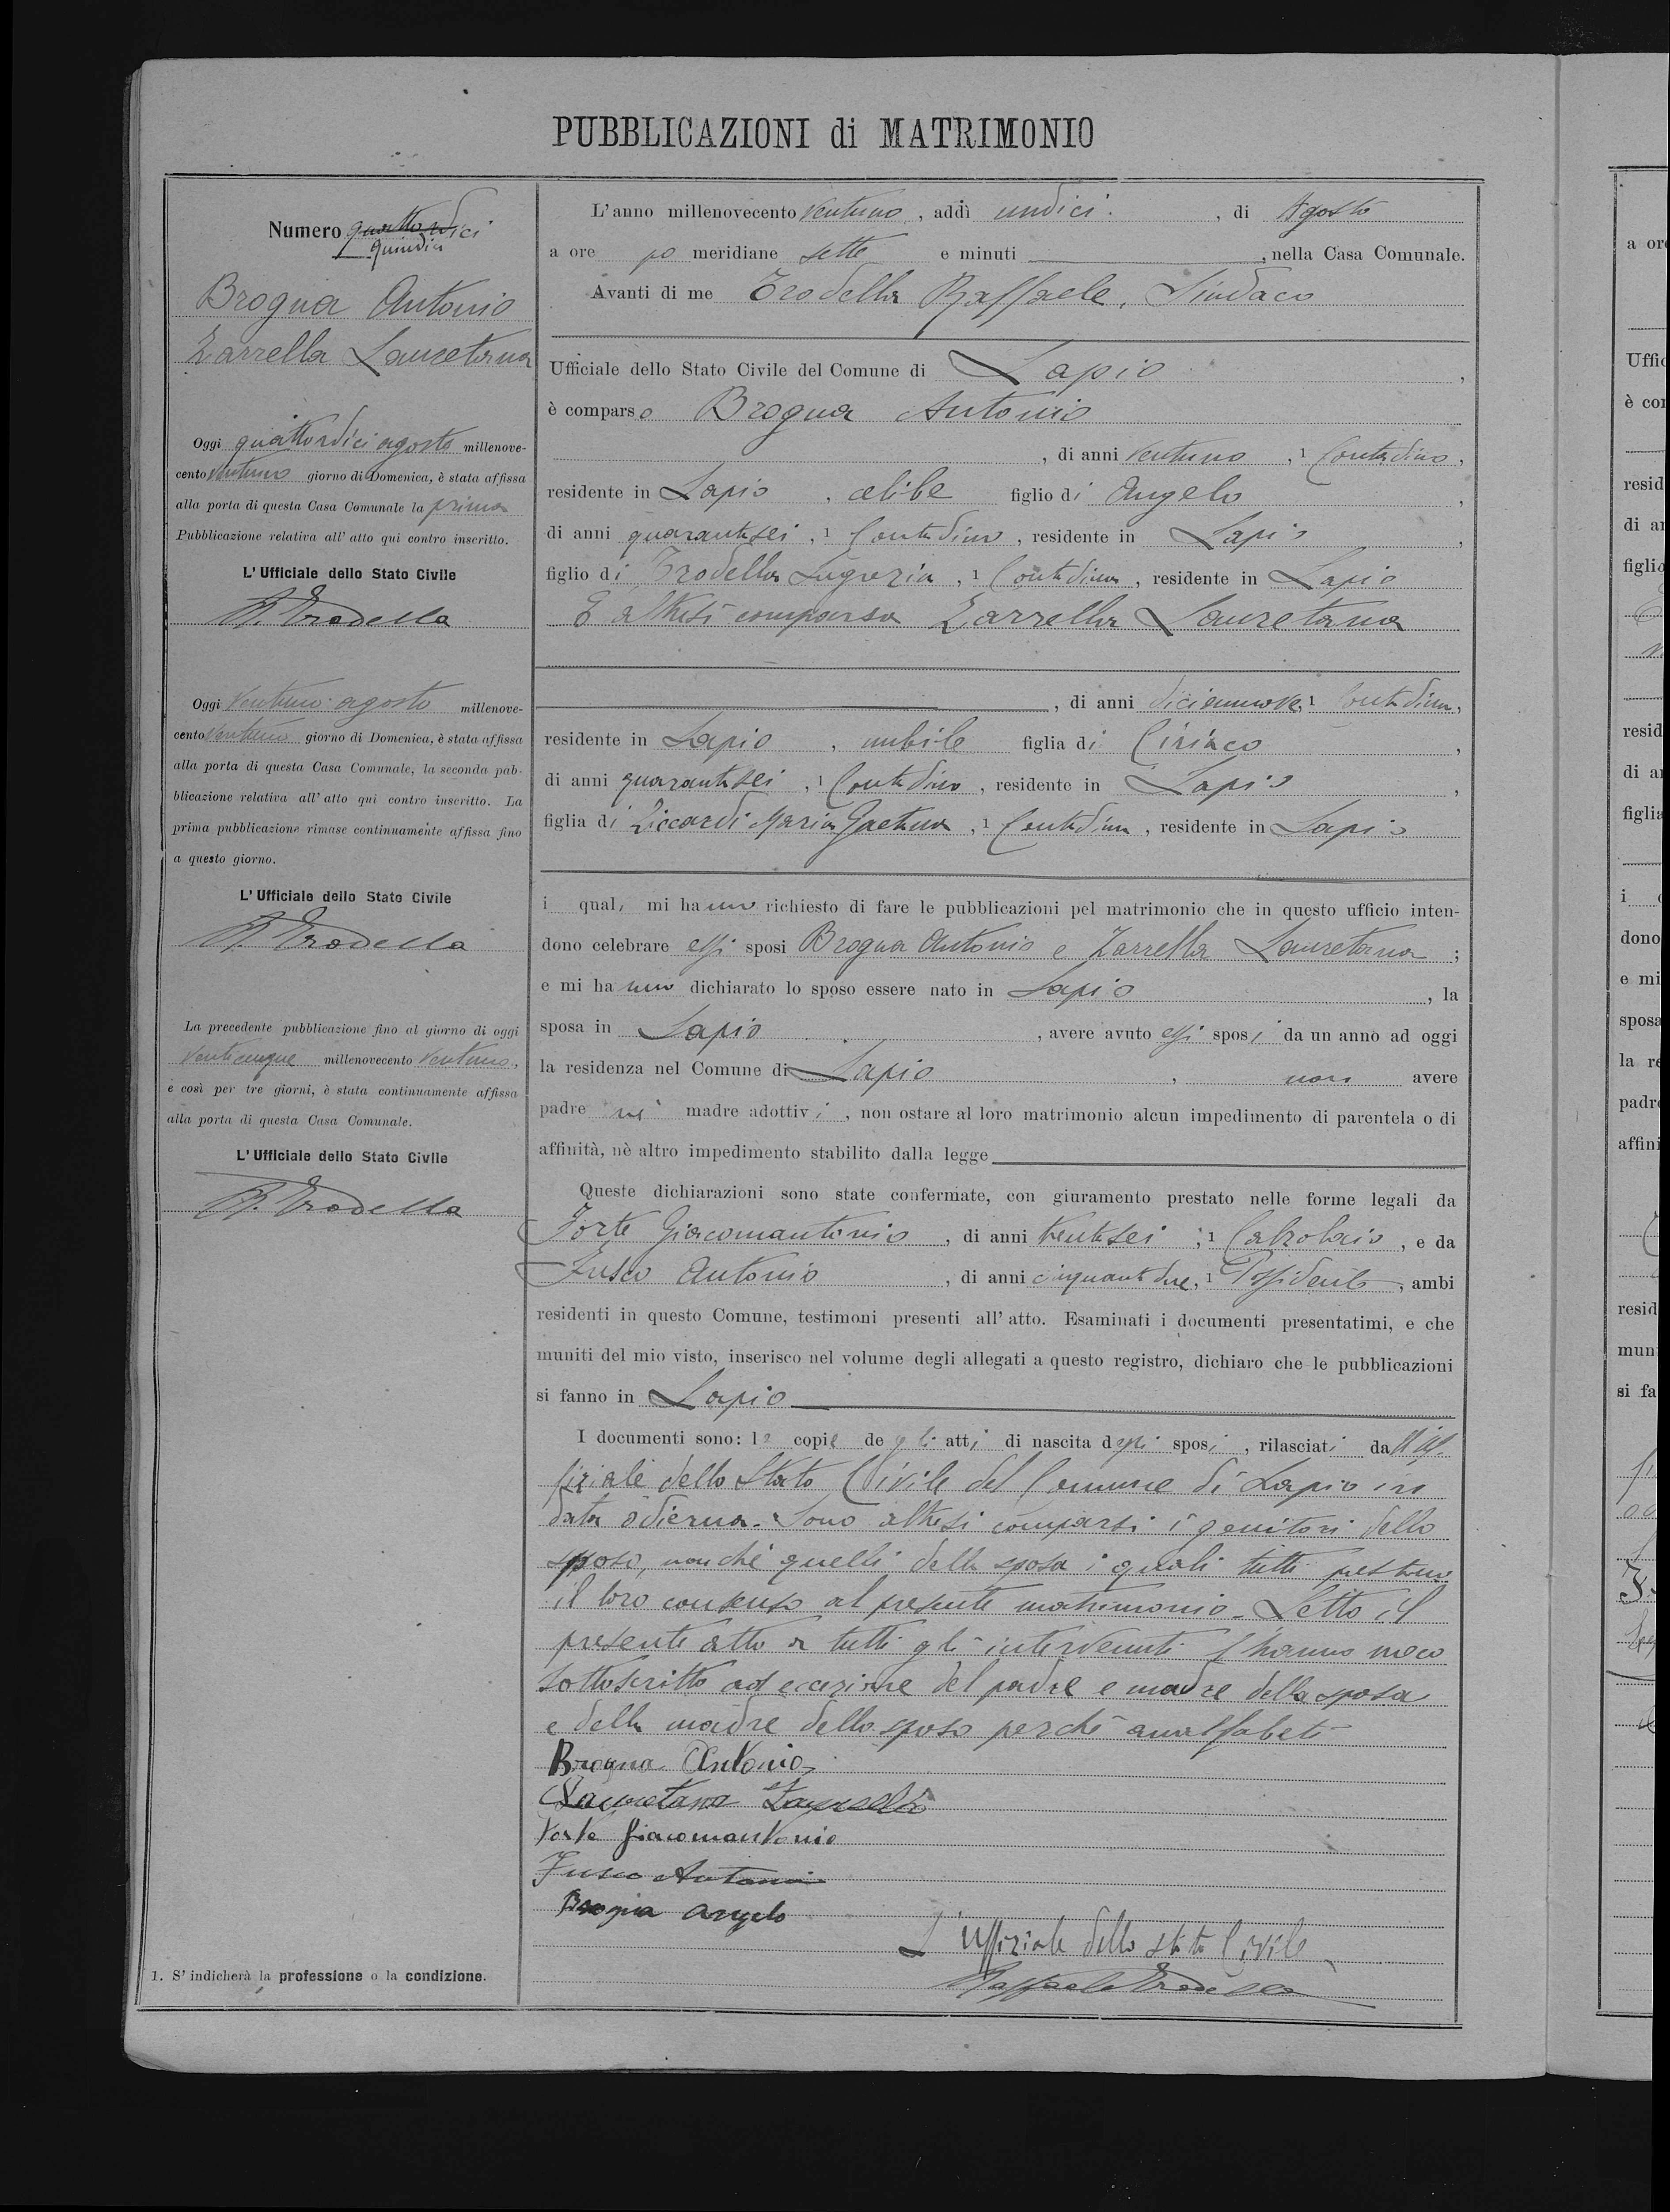 PUBBLICAZIONI di MATRIMONIO
Numero quattordici
quindici
Brogna Antonio
Zarrella Lauretana
Oggi quattordici agosto millenove-
cento ventuno giorno di Domenica, è stata affissa
alla porta di questa Casa Comunale la prima
Pubblicazione relativa all' atto qui contro inscritto.
L' Ufficiale dello Stato Civile
R. Trodella
Oggi Ventuno agosto millenove-
cento ventuno giorno di Domenica, è stata affissa
alla porta di questa Casa Comunale, la seconda pub-
blicazione relativa all' atto qui contro inscritto. La
prima pubblicazione rimase continuamente affissa fino
a questo giorno.
L' Ufficiale dello Stato Civile
R. Trodella
La precedente pubblicazione fino al giorno di oggi
Venticinque millenovecento Ventuno,
e così per tre giorni, è stata continuamente affissa
alla porta di questa Casa Comunale.
L' Ufficiale dello Stato Civile
R. Trodella
1. S' indicherà la professione o la condizione.
L'anno millenovecento Ventuno, addì undici. , di Agosto
a ore po meridiane sette e minuti , nella Casa Comunale.
Avanti di me Trodella Raffaele, Sindaco
Ufficiale dello Stato Civile del Comune di Lapio ,
è comparso Brogna Antonio
, di anni ventuno , 1 Contadino,
residente in Lapio , celibe figlio di Angelo ,
di anni quarantasei, 1 Contadino, residente in Lapio ,
figlio di Trodella Lugrezia, 1 Contadina, residente in Lapio
E altresì comparsa Zarrella Lauretana
, di anni diciannove, 1 Contadina,
residente in Lapio , nubile figlia di Ciriaco ,
di anni quarantasei , 1 Contadino, residente in Lapio ,
figlia di Ziccardi Maria Gaetana, 1 Contadina, residente in Lapio
i quali mi hanno richiesto di fare le pubblicazioni pel matrimonio che in questo ufficio inten-
dono celebrare essi sposi Brogna Antonio e Zarrella Lauretana ;
e mi hanno dichiarato lo sposo essere nato in Lapio , la
sposa in Lapio , avere avuto essi sposi da un anno ad oggi
la residenza nel Comune di Lapio , non avere
padre nè madre adottivi, non ostare al loro matrimonio alcun impedimento di parentela o di
affinità, nè altro impedimento stabilito dalla legge
Queste dichiarazioni sono state confermate, con giuramento prestato nelle forme legali da
Forte Giacomantonio , di anni ventisei , 1 Calzolaio, e da
Fusco Antonio , di anni cinquantadue, 1 Possidente, ambi
residenti in questo Comune, testimoni presenti all' atto. Esaminati i documenti presentatimi, e che
muniti del mio visto, inserisco nel volume degli allegati a questo registro, dichiaro che le pubblicazioni
si fanno in Lapio
I documenti sono: le copie degli atti di nascita degli sposi , rilasciati dall'Uf-
fiziale dello Stato Civile del Comune di Lapio in
data odierna. Sono altresì comparsi i genitori dello
sposo, nonchè quelli della sposa i quali tutti prestano
il loro consenso al presente matrimonio. Letto il
presente atto a tutti gl'intervenuti l'hanno meco
sottoscritto ad eccezione del padre e madre della sposa
e della madre dello sposo perchè analfabeti
Brogna Antonio
Lauretana Zarrella
Forte Giacomantonio
Fusco Antonio
Brogna Angelo
L'Uffiziale dello Stato Civile
Raffaele Trodella
a ore
Uffic
è con
resid
di an
figlio
resid
di an
figlia
i
dono
e mi
sposa
la re
padre
affini
resid
muni
si fa